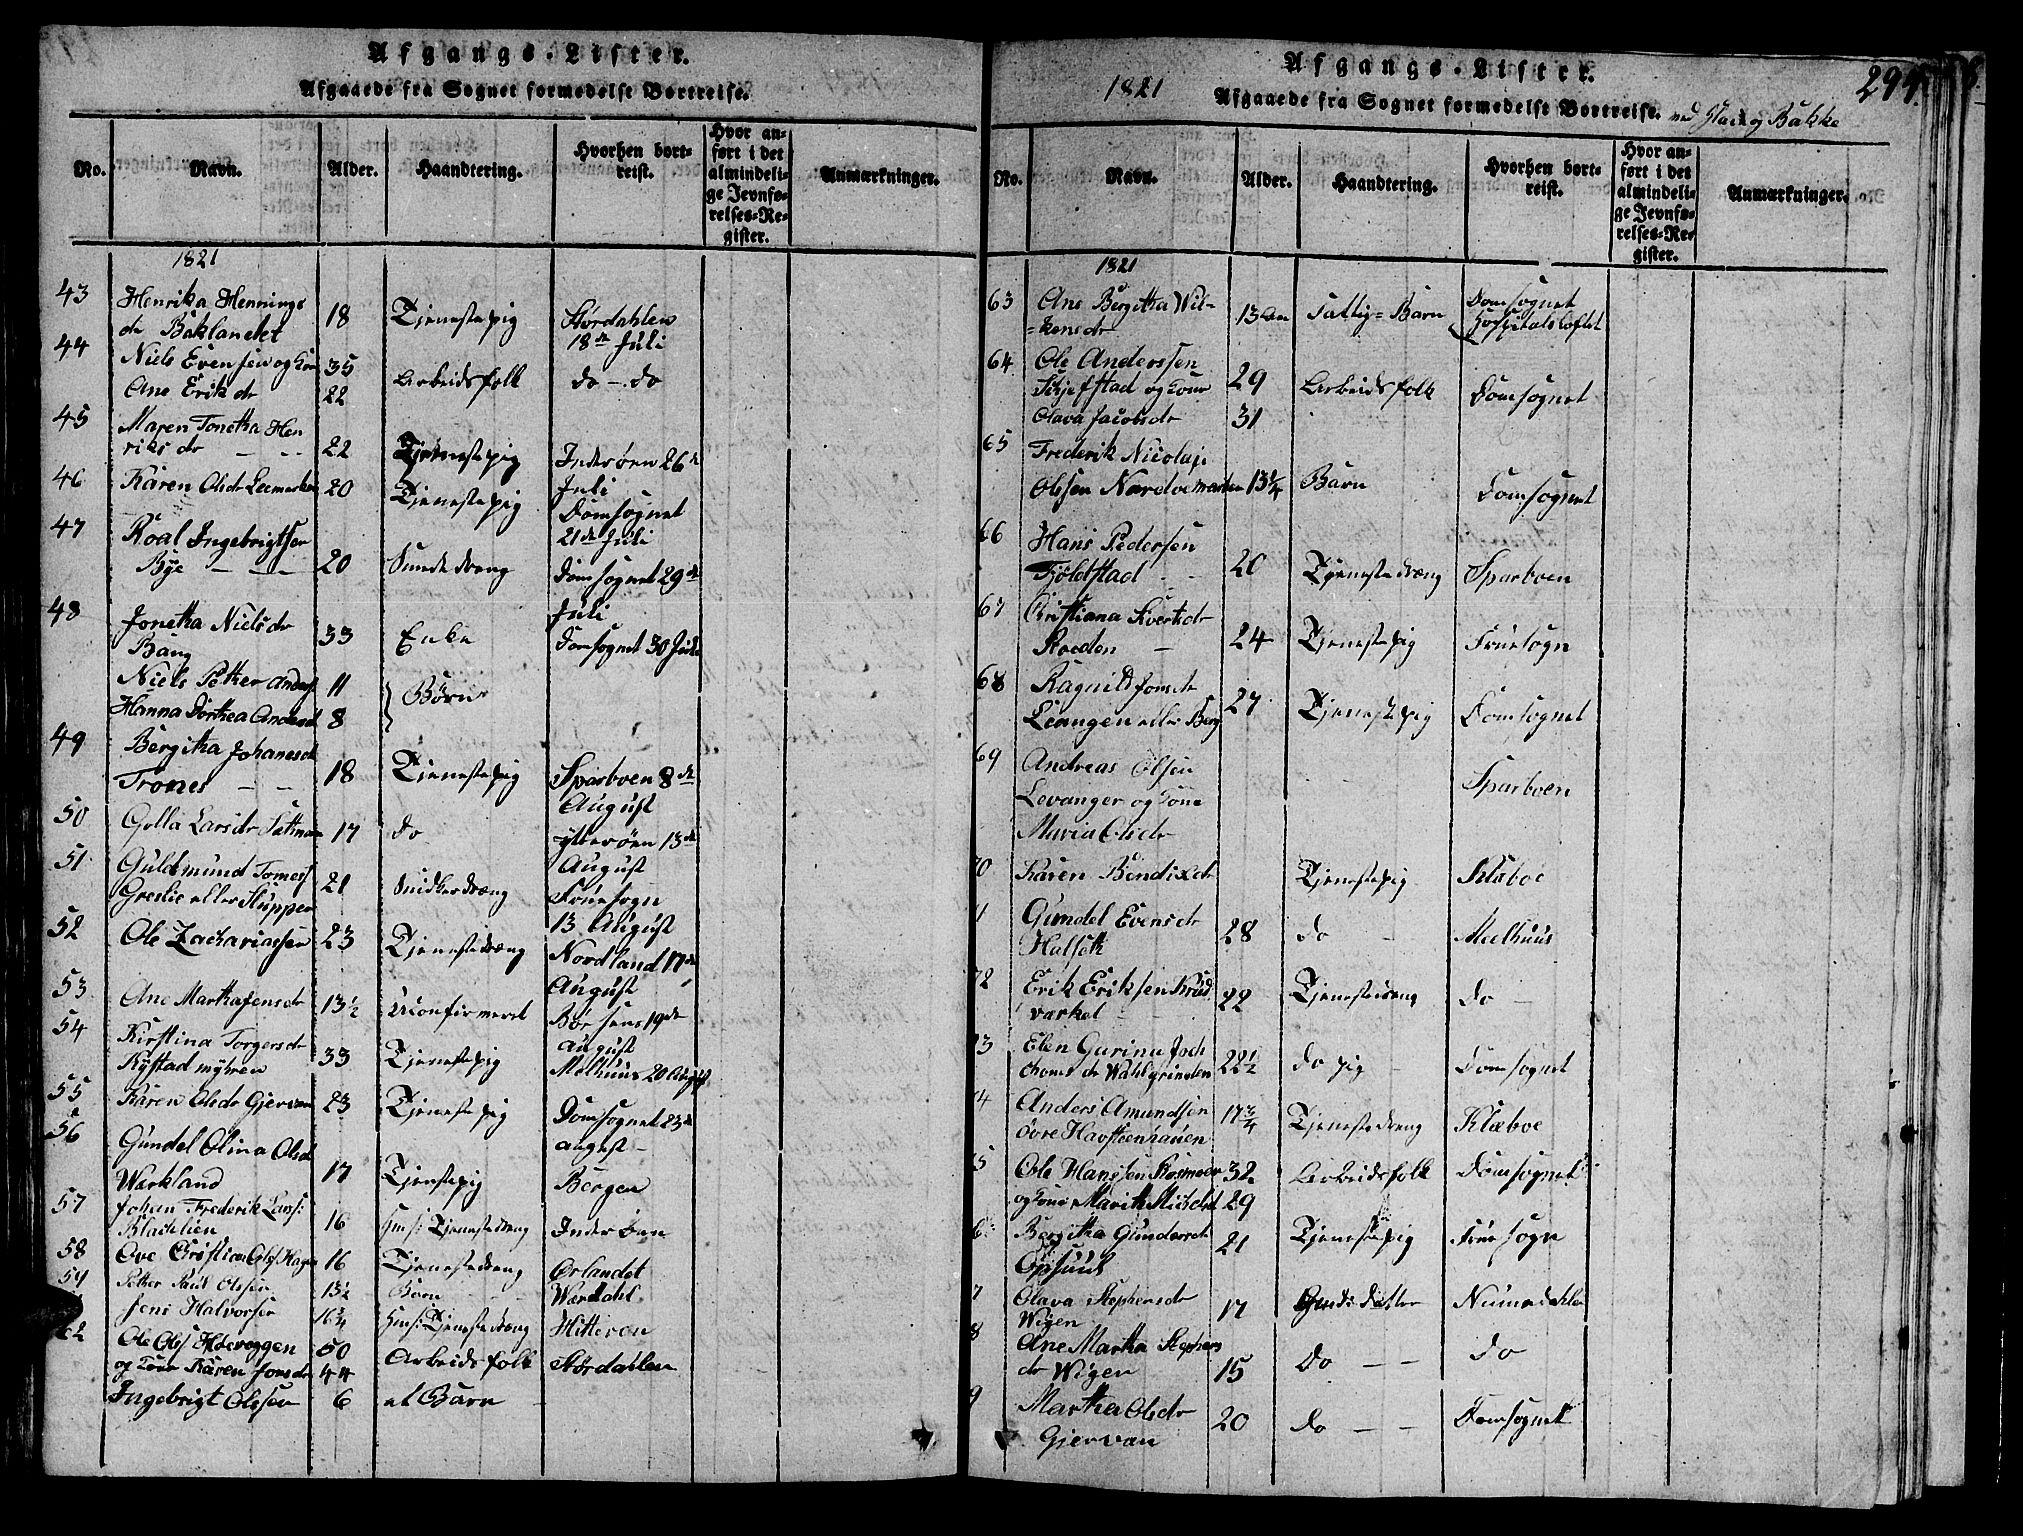 Afgangs-Lister.
Afgaaede fra Sognet formedelst Bortreise.
No. Navn. Alder. Haandtering. Hvorhen bortreist. Hvor anført i det almindelige Jevnførelses-Register. Anmærkninger.
1821
43 Henrika Hennings
dr Baklandet 18 Tjenestepig Stördahlen
18de Juli
44 Niels Evensen og Kone 35
Ane Erikdr 22 Arbeidsfolk do - do
45 Maren Tonetha Hen
riks dr 22 Tjenestepig Inderöen 26de
Juli
46 Karen Olsdr 20 Tjenestepig Domsognet
21de Juli
47 Roal Ingebrigtsen
Bye 20 Domsognet 29de
Juli
48 Jonetha Nielsdr
Bang 33 Enke Domsognet 30 Juli
Niels Petter Anders 11
Hanna Dorthea Andersd 8 Børn
49 Bergitha Johanesdr
Trones 18 Tjenestepig Sparboen 8de
August
50 Golla Larsdr 17 do Ytterøen 13de
August
51 Guldmund Tomess
Greslie eller Sluppen 21 Snidkerdræng Fruesogn
13 August
52 Ole Zachariassen 23 Tjenestedræng Nordland 17de
August
53 Ane Martha Jensdr 13½ Uconfirmeret Börsen 19de
August
54 Kirstina Torgersdr
Rystad myhren 33 Tjenestepig Melhuus 20 August
55 Karen Olsdr Gjervan 23 Tjenestepig Domsognet 23de
august
56 Gundel Olina Olsd
Werkland 17 Tjenstepig Bergen
57 Johan Frederik Larss:
Blachlien 16 Tjenestedreng Inderöen
58 Ove Christian Ols: Hagen 16 Tjenestedreng Ørlandet
59 Petter Paul Olssen 13½ Barn Værdahl
Jens Halvorsen 16¾ Tjenestedreng Hitteröen
62 Ole Ols 50
og Kone Karen Jonsdr 44 Arbeidsfolk Stördahlen
Ingebrigt Olssen 6 et Barn
1821
Afgangs-Lister.
294.
Afgaaede fra Sognet formedelst Bortreise. ved Stad og Bakke
No. Navn. Alder. Haandtering. Hvorhen bortreist. Hvor anført i det almindelige Jevnførelses-Register. Anmærkninger.
1821
63 Ane Bergitha Wil-
=kensdr 13 Aar Fattig=Barn Domsognet
Hospitalsloftet
64 Ole Anderssen
Skjefstad og Kone 29 Arbeidsfolk Domsognet
Olava Jacobsdr 31
65 Frederik Nicolaj
Olssen 13¼ Barn Domsognet
66 Hans Pedersen
Fjöldstad 20 Tjenestedræng Sparboen
67 Christiana Sivertsdr
Roeden 24 Tjenestepig Fruesogn
68 Ragnild Jonsdr
Leangen eller Berg 27 Tjenestepig Domsognet
69 Andreas Olsen
Levanger og Kone Sparboen
Maria Olsdr
70 Karen Bendixdr Tjenestepig Klæboe
1 Gundel Evensdr
Halseth 28 do Meelhuus
72 Erik Eriksen Krud
værket 22 Tjenestedreng do
3 Elen Gurina Joch
choms dr Wahlgrinden 22½ do pig Domsognet
4 Anders Amundsen
övre Havsteenhauen 17¾ Tjenestedreng Klæboe
5 Ole Hanssen 32 Arbeidsfolk Domsognet
og Kone Marith 29
6 Bergitha Gundersdr
Opsund 21 Tjenestepig Fruesogn
7 Olava Stephensdr
Wigen 17 Numedahlen
8 Ane Martha Stephens
dr Wigen 15 do do
9 Martha Olsdr
Gjervan 20 do Domsognet